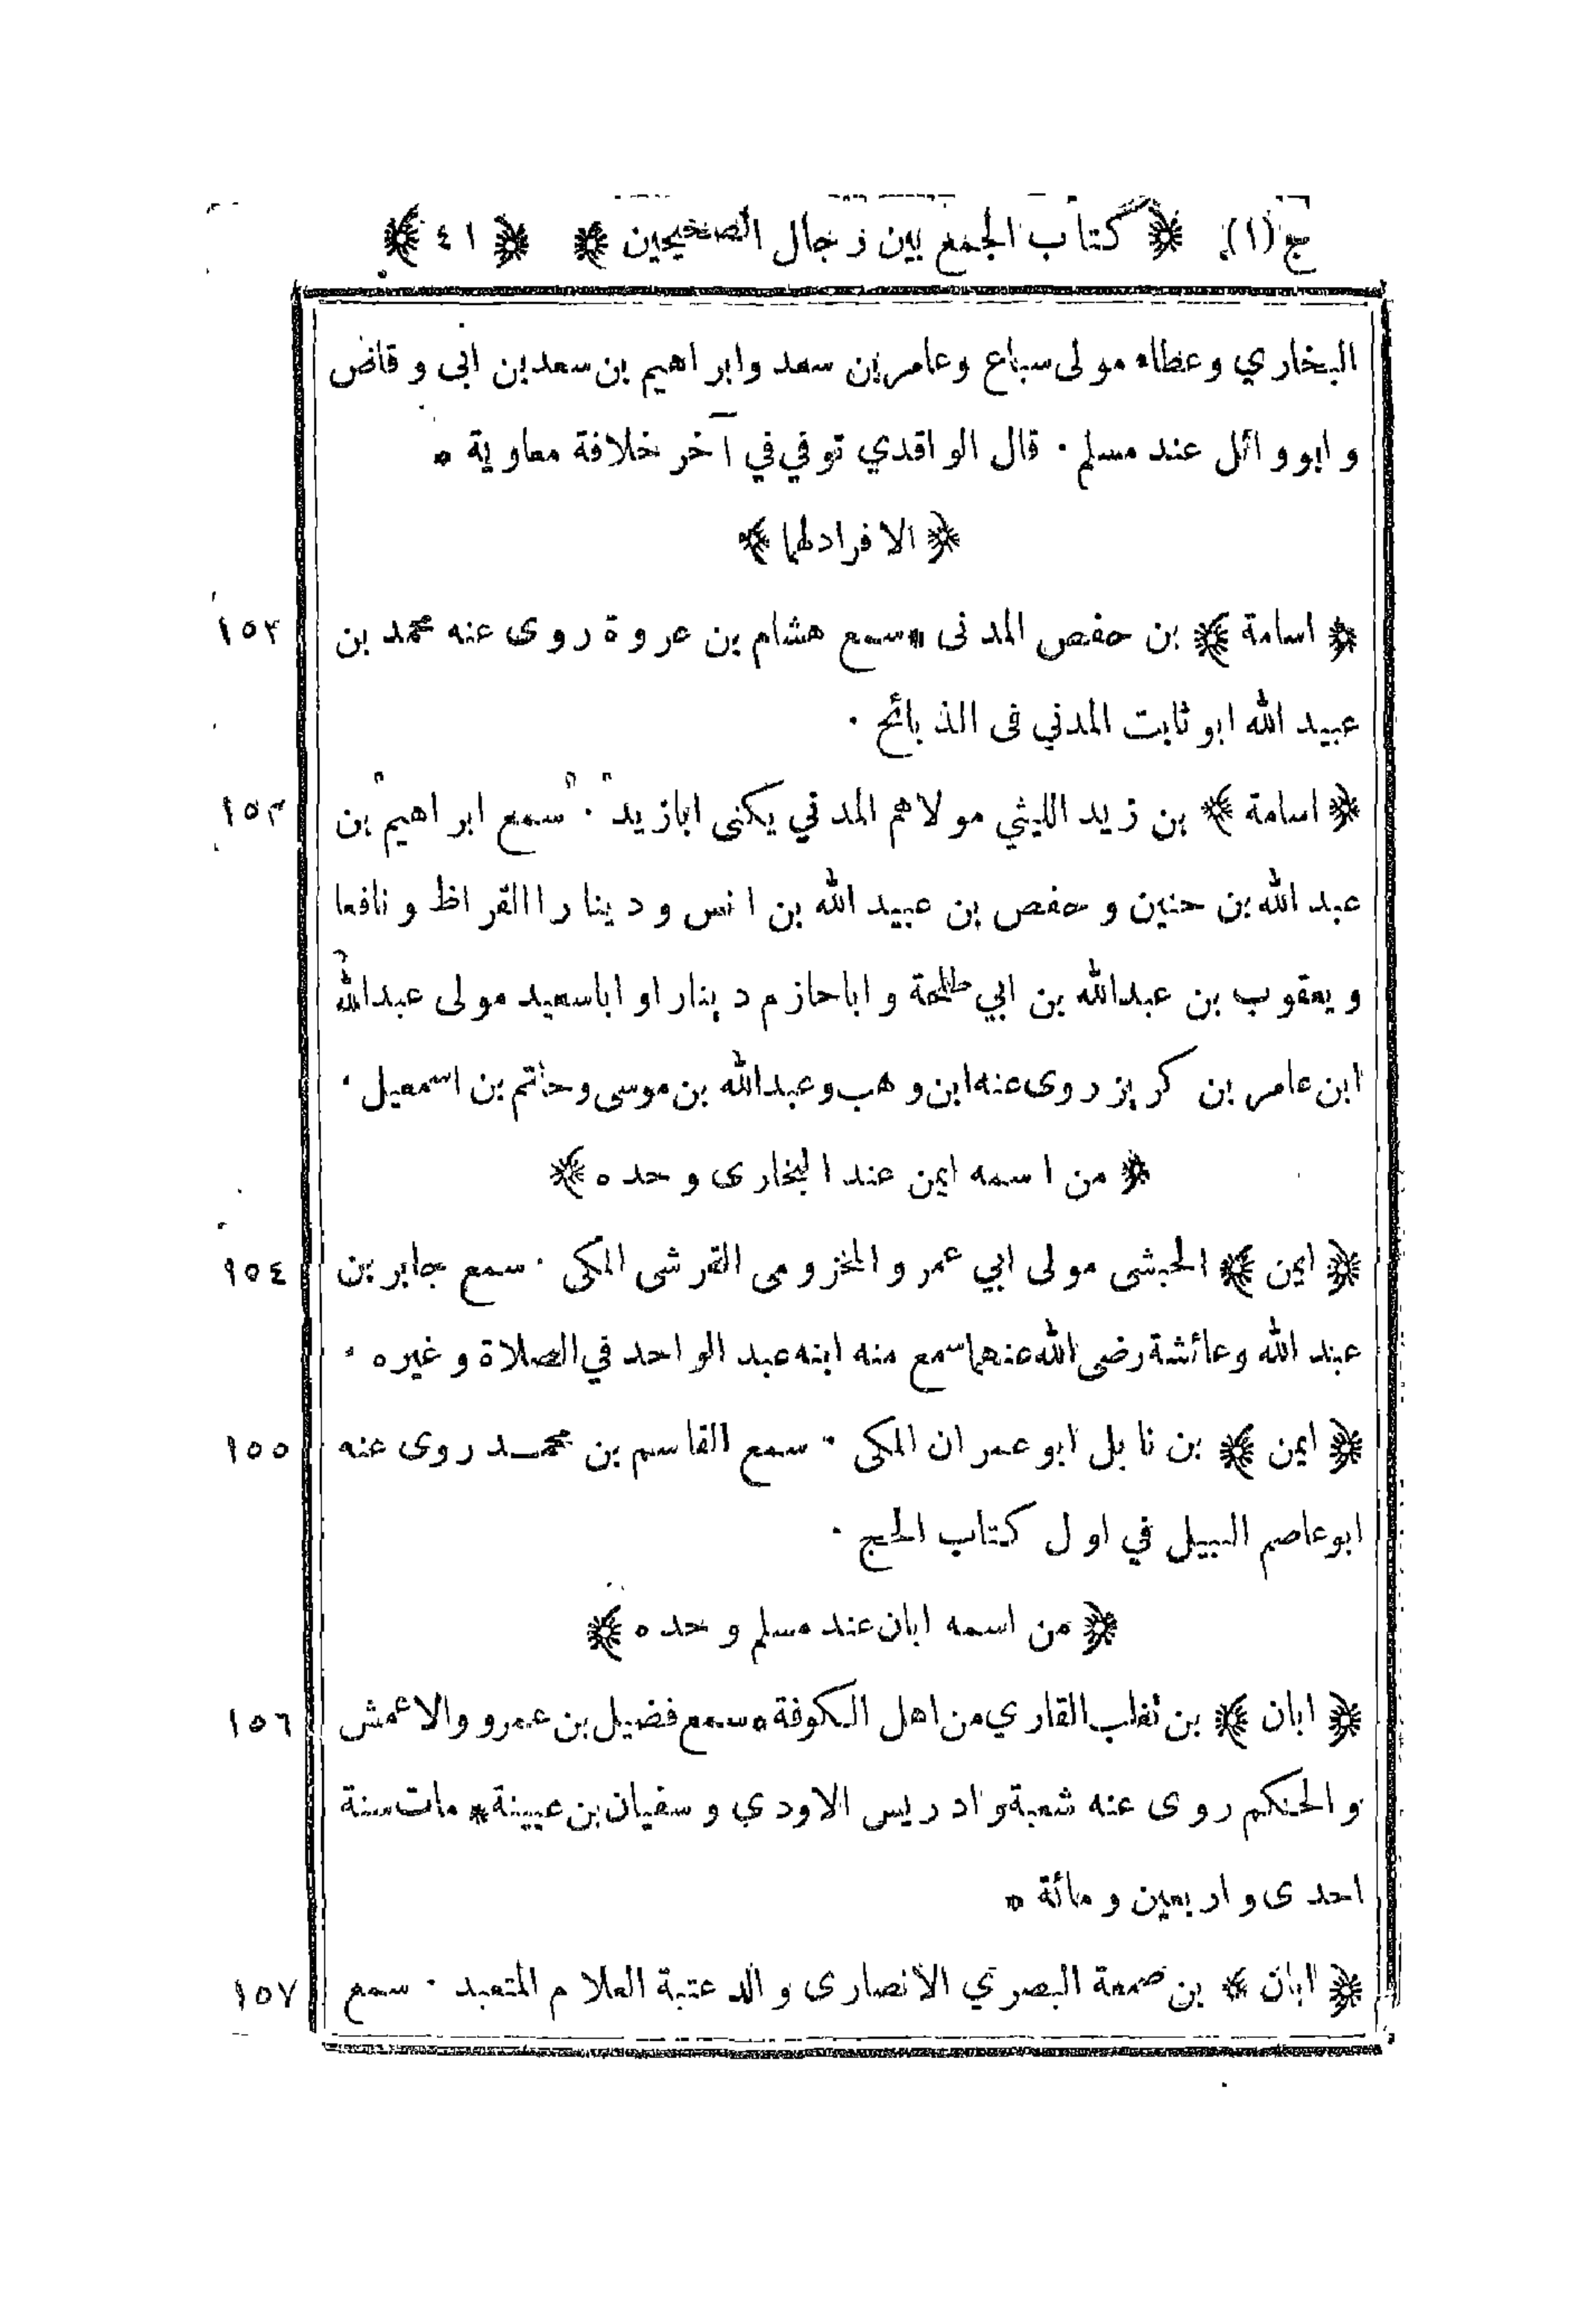 ج (١) ﴿ كتاب الجمع بين رجال الصحيحين ﴾ ﴿ ٤١ ﴾
البخاري وعطاء مولى سباع وعامر بن سعد وابراهيم بن سعد بن ابى وقاص
وابو وائل عند مسلم ٠ قال الواقدي توفي في آخر خلافة معاوية *
﴿ الافراد لهما ﴾
﴿ اسامة ﴾ بن حفص المدنى * سمع هشام بن عروة روى عنه محمد بن ١٥٢
عبيد الله ابو ثابت المدني فى الذبائح ٠
﴿ اسامة ﴾ بن زيد الليثي مولاهم المدني يكنى ابازيد ٠ سمع ابراهيم بن ١٥٣
عبد الله بن حنين وحفص بن عبيد الله بن انس ودينارا القراظ ونافعا
ويعقوب بن عبدالله بن ابي طلحة واباحازم دينارا واباسعيد مولى عبدالله
ابن عامر بن كريز روى عنه ابن وهب وعبدالله بن موسى وحاتم بن اسمعيل ٠
﴿ من اسمه ايمن عند البخارى وحده ﴾
﴿ ايمن ﴾ الحبشى مولى ابي عمرو المخزومى القرشى المكى ٠ سمع جابر بن ١٥٤
عبد الله وعائشة رضى الله عنهما سمع منه ابنه عبد الواحد في الصلاة وغيره ٠
﴿ ايمن ﴾ بن نابل ابو عمران المكى ٠ سمع القاسم بن محمد روى عنه ١٥٥
ابو عاصم النبيل في اول كتاب الحج ٠
﴿ من اسمه ابان عند مسلم وحده ﴾
﴿ ابان ﴾ بن تغلب القاري من اهل الكوفة * سمع فضيل بن عمرو والاعمش ١٥٦
والحكم روى عنه شعبة وادريس الاودي وسفيان بن عيينة * مات سنة
احدى واربعين ومائة *
﴿ ابان ﴾ بن صمعة البصري الانصارى والد عتبة الغلام المتعبد ٠ سمع ١٥٧